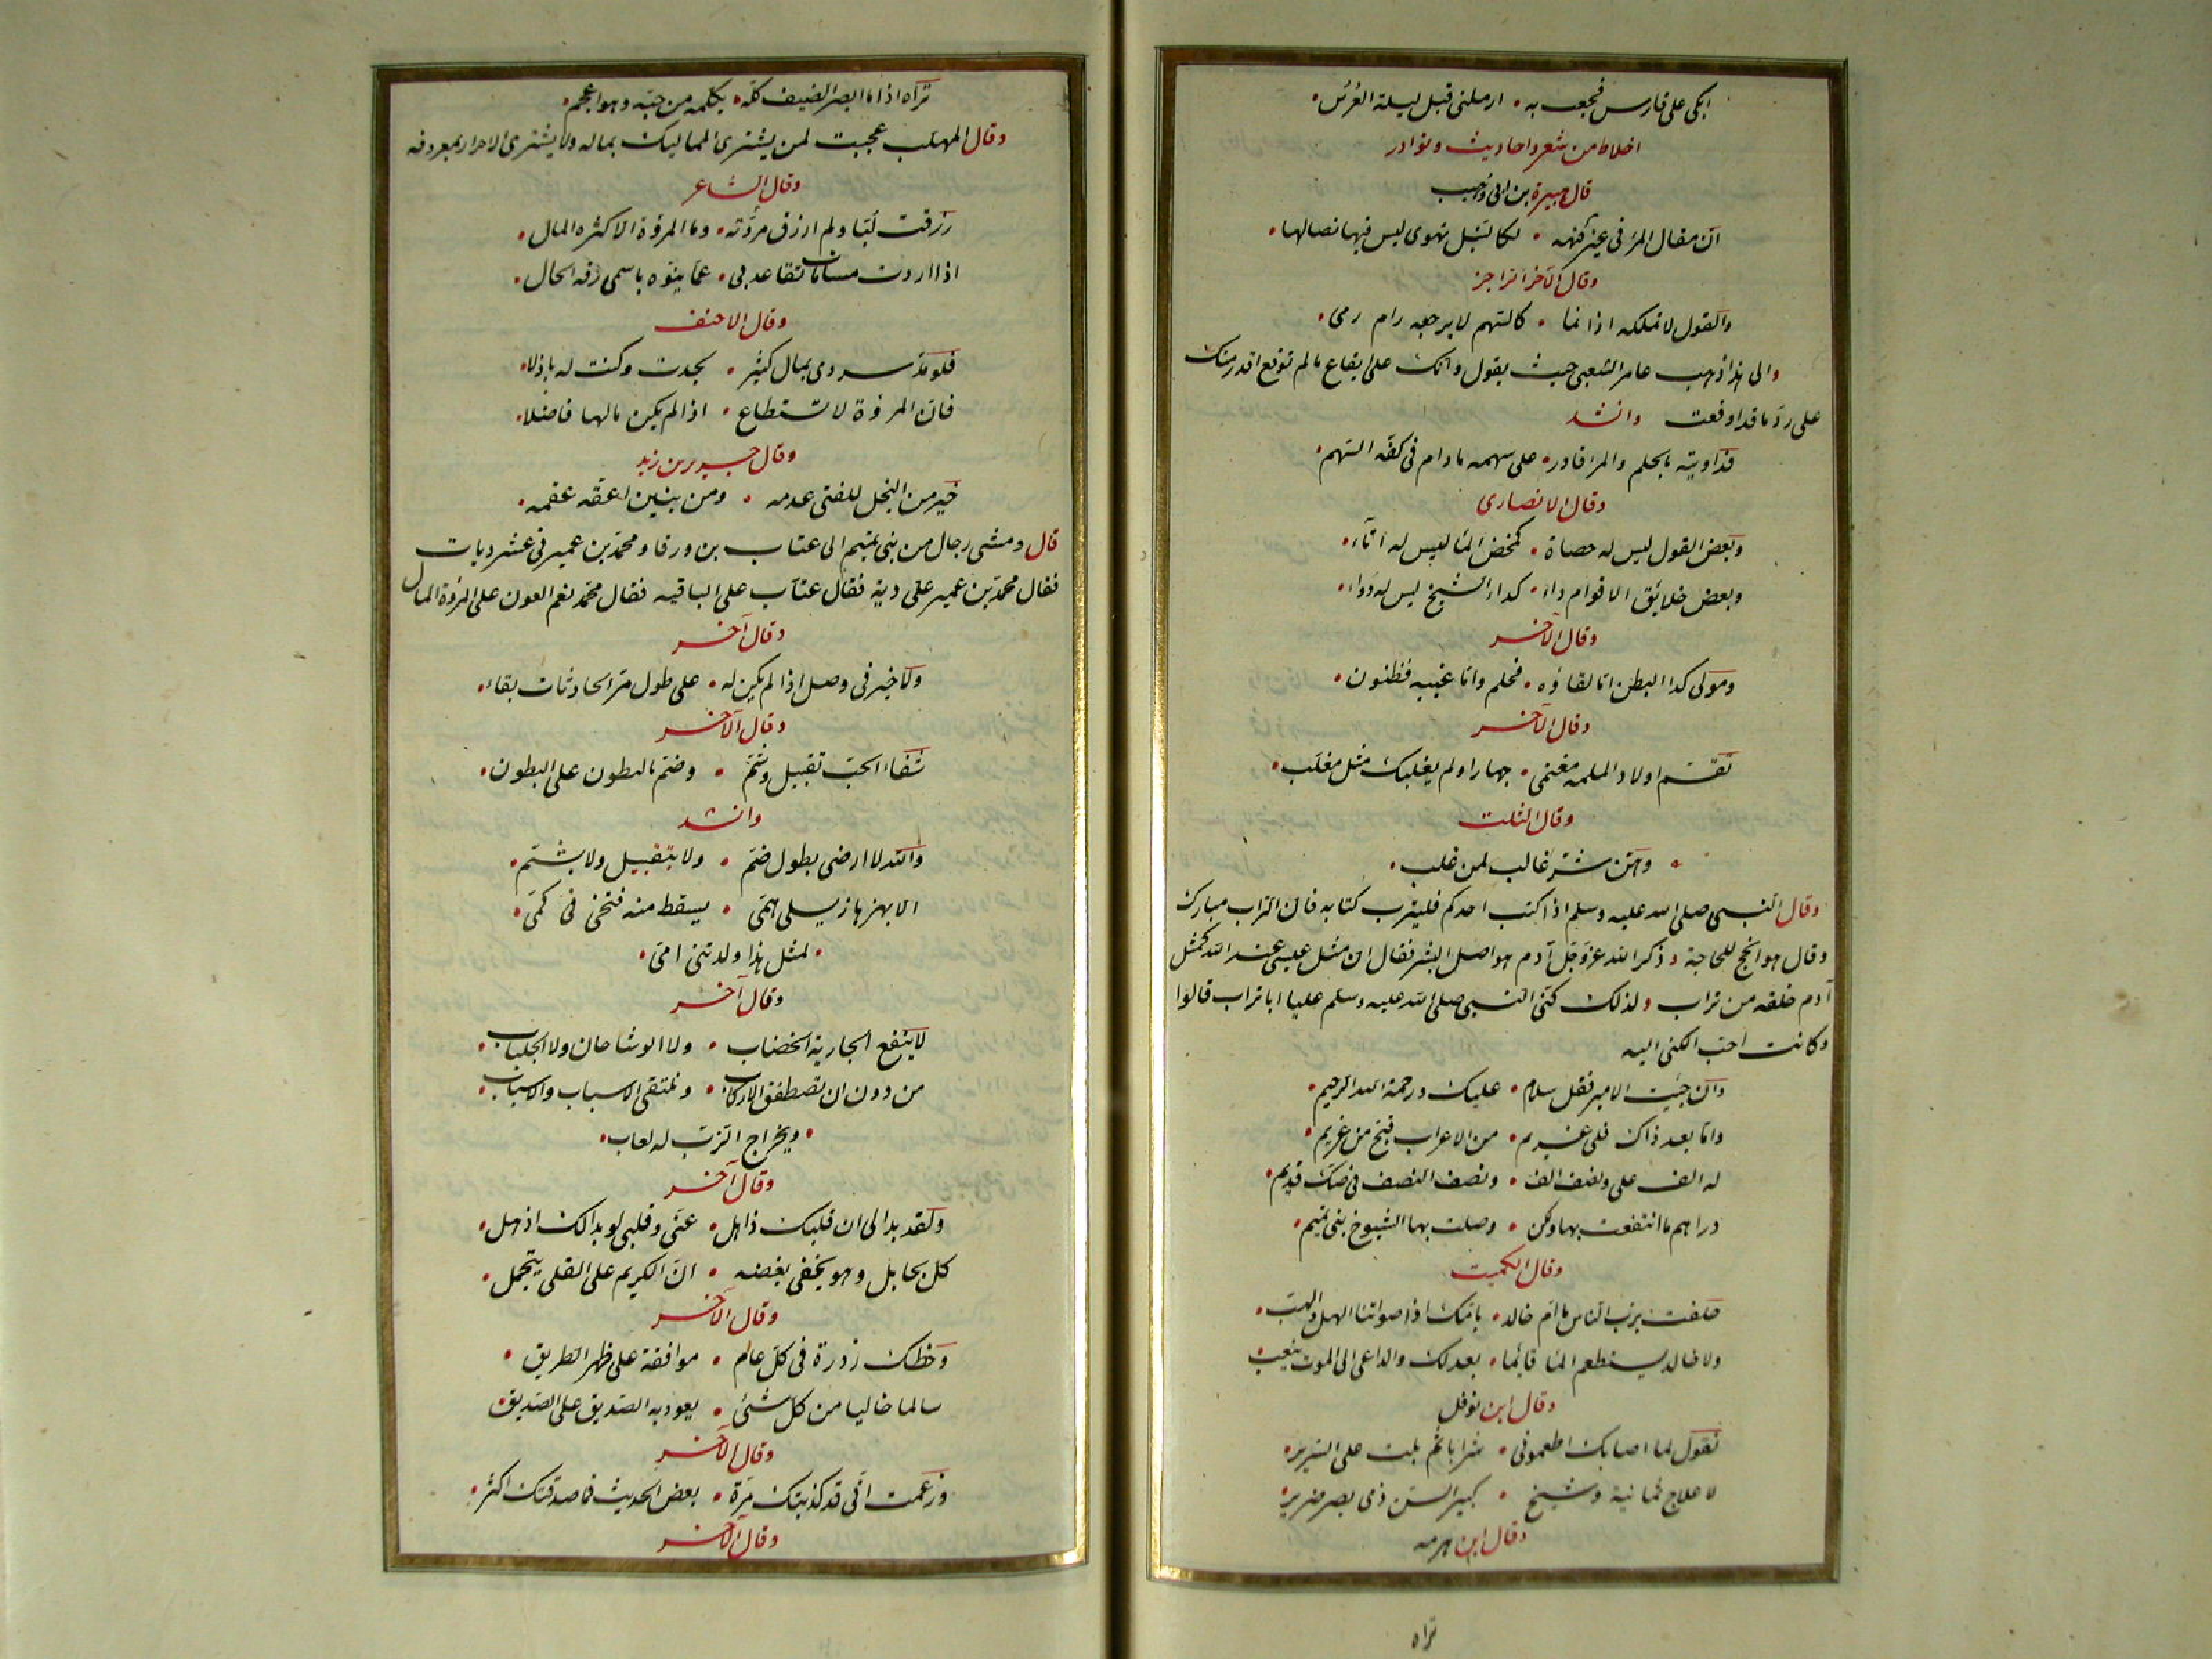 ابكى على فارس فجعت به • ارملنى قبل ليلة العرس •
اخلاط من شعر واحاديث ونوادر
قال هبيرة بن ابى وهب
ان مقال المرء فى غير كنهه • لكالنبل تهوى ليس فيها نصالها •
وقال الآخر الراجز
والقول لا تملكه اذا نما • كالسهم لا يرجعه رام رمى •
والى هذا ذهب عامر الشعبى حيث يقول وانك على ايقاع ما لم توقع اقدر منك
على رد ما قد اوقعت وانشد
فداويته بالحلم والمرء قادر • على سهمه ما دام فى كفه السهم •
وقال الانصارى
وبعض القول ليس له حصاة • كمخض الماء ليس له اتاء •
وبعض خلائق الاقوام داء • كداء الشيخ ليس له دواء •
وقال الآخر
ومولى كداء البطن اما لقاؤه • فحلم واما غيبه فظنون •
وقال الآخر
تقسم اولاد الملمة مغنمى • جهارا ولم يغلبك مثل مغلب •
وقال الثلب
• وهن شر غالب لمن غلب •
وقال النبى صلى الله عليه وسلم اذا كتب احدكم فليترب كتابه فان التراب مبارك
وقال هو انجح للحاجة وذكر الله عز وجل آدم هو اصل البشر فقال ان مثل عيسى عند الله كمثل
آدم خلقه من تراب ولذلك كنى النبى صلى الله عليه وسلم عليا ابا تراب قالوا
وكانت احب الكنى اليه
وان جئت الامير فقل سلام • عليك ورحمة الله الرحيم •
واما بعد ذاك فلى غريم • من الاعراب قبح من غريم •
له الف على ونصف الف • ونصف النصف فى صك قديم •
دراهم ما انتفعت بها ولكن • وصلت بها الشيوخ بنى تميم •
وقال الكميت
حلفت برب الناس ما ام خالد • بامك اذ اصواتنا الهل والهب •
ولا خالد يستطعم الماء قائما • بعدلك والداعى الى الموت ينعب
وقال ابن نوفل
تقول لما اصابك اطعمونى • شرابا ثم بلت على السرير •
لاعلاج ثمانية وشيخ • كبير السن ذى بصر ضرير •
وقال ابن هرمه
تراه
تراه اذا ما ابصر الضيف كلبه • يكلمه من حبه وهو اعجم •
وقال المهلب عجبت لمن يشترى المماليك بماله ولا يشترى الاحرار بمعروفه
وقال الشاعر
رزقت لبا ولم ارزق مروته • وما المروة الا كثرة المال •
اذا اردت مساماة تقاعد بى • عما ينوه باسمى رقة الحال •
وقال الاحنف
فلو مد سروى بمال كثير • لجدت وكنت له باذلا •
فان المروة لا تستطاع • اذا لم يكن مالها فاضلا •
وقال جرير بن زيد
خير من البخل للفتى عدمه • ومن بنين اعقة عقمه •
قال ومشى رجال من بنى تميم الى عتاب بن ورقاء ومحمد بن عمير فى عشر ديات
فقال محمد بن عمير على دية فقال عتاب على الباقيه فقال محمد نعم العون على المروة المال
وقال آخر
ولا خير فى وصل اذا لم يكن له • على طول مر الحادثات بقاء •
وقال الآخر
شفاء الحب تقبيل وشم • وضم بالبطون على البطون •
وانشد
والله لا ارضى بطول ضم • ولا بتقبيل ولا بشم •
الا بهزهاز يسلى همى • يسقط منه فتخى فى كمى •
• لمثل هذا ولدتنى امى •
وقال آخر
لا ينفع الجارية الخضاب • ولا الوشاحان ولا الجلباب •
من دون ان تصطفق الاركاب • وتلتقى الاسباب والاسباب •
• ويخرج الزب له لعاب •
وقال آخر
ولقد بدا لى ان قلبك ذاهل • عنى وقلبى لو بدا لك اذهل •
كل يجامل وهو يخفى بغضه • ان الكريم على القلى يتجمل •
وقال الآخر
وحظك زورة فى كل عام • موافقة على ظهر الطريق •
سالما خاليا من كل شئ • يعود به الصديق على الصديق •
وقال الآخر
وزعمت انى قد كذبتك مرة • بعض الحديث فما صدقتك اكثر •
وقال الآخر